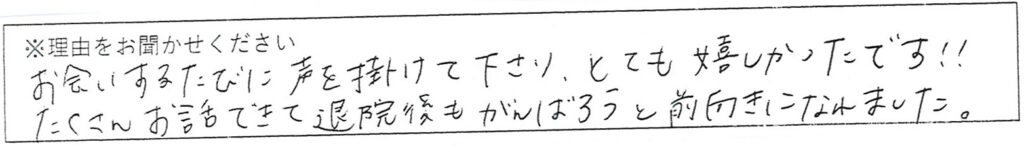 ※理由をお聞かせください
お会いするたびに声を掛けて下さり、とても嬉しかったです!!
たくさんお話できて退院後もがんばろうと前向きになれました。